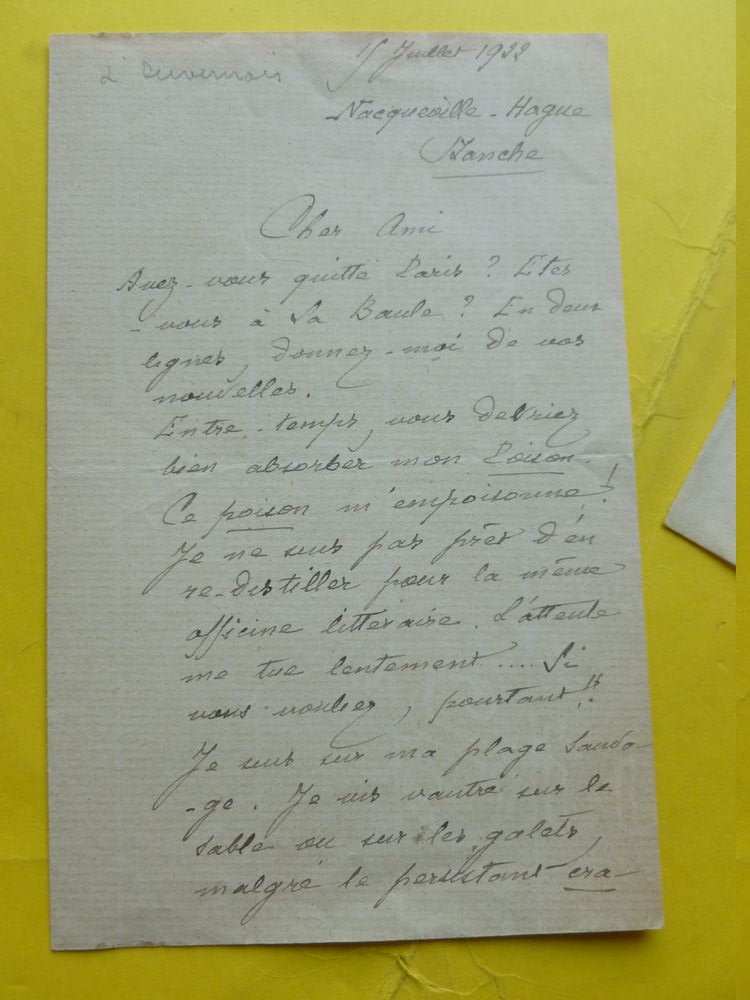 à Duvernois
15 Juillet 1922
Nacqueville - Hague
Manche
Cher Ami
Avez-vous quitté Paris ? Etes
-vous à La Baule ? En deux
lignes, donnez-moi de vos
nouvelles.
Entre-temps, vous devriez
bien absorber mon Poison.
Ce poison m'empoisonne !
Je ne suis pas prêt d'en
re-distiller pour la même
officine littéraire. L'attente
me tue lentement .... Si
vous vouliez, pourtant !!
Je suis sur ma plage sauva
-ge. Je vis vautré sur le
sable ou sur les galets,
malgré le persistant cra-